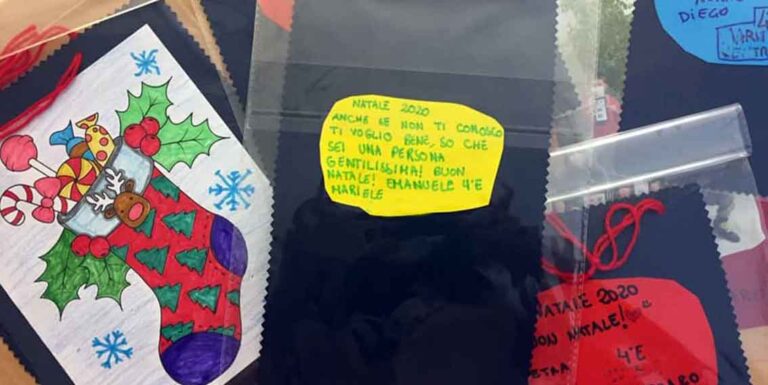 DIEGO
NATALE 2020
ANCHE SE NON TI CONOSCO
TI VOGLIO BENE, SO CHE
SEI UNA PERSONA
GENTILISSIMA! BUON
NATALE! EMANUELE 4°E
MARIELE
NATALE 2020
UON NATALE!
4°E